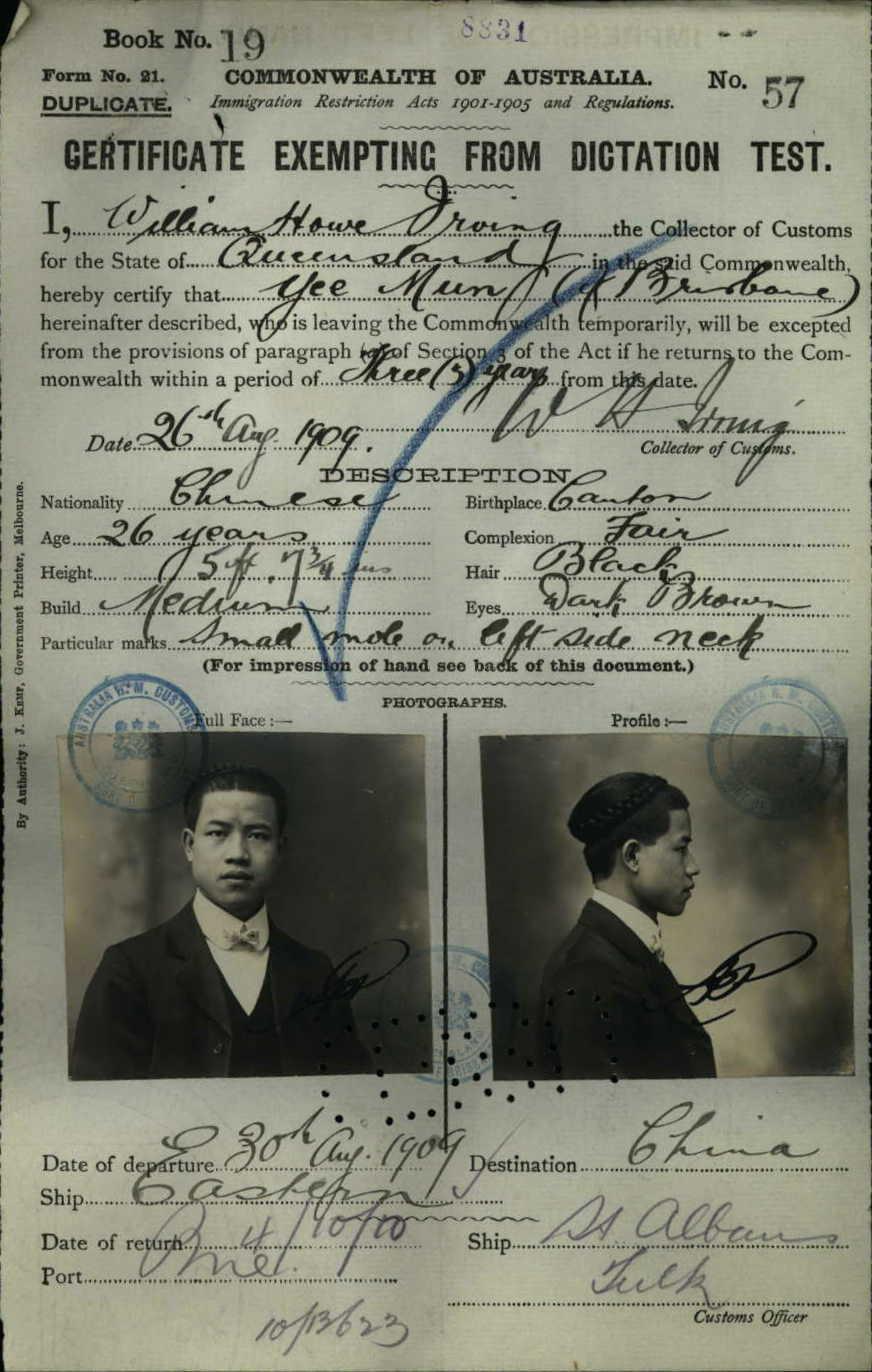 Book No. 19
8831
Form No. 21.
COMMONWEALTH OF AUSTRALIA.
No. 57
DUPLICATE.
Immigration Restriction Acts 1901-1905 and Regulations.
CERTIFICATE EXEMPTING FROM DICTATION TEST.
I, William Howe Irving the Collector of Customs
for the State of Queensland in the said Commonwealth,
hereby certify that Yee Mun (of Brisbane)
hereinafter described, who is leaving the Commonwealth temporarily, will be excepted
from the provisions of paragraph (a) of Section 3 of the Act if he returns to the Com-
monwealth within a period of three (3) years from this date.
W H Irving
Date 26th Aug. 1909.
Collector of Customs.
DESCRIPTION
Nationality Chinese
Birthplace Canton
Age 26 years
Complexion Fair
Height 5 ft. 7 3/4 ins
Hair Black
Build Medium
Eyes Dark Brown
Particular marks Small mole on left side neck
(For impression of hand see back of this document.)
PHOTOGRAPHS.
Full Face :—
Profile :—
AUSTRALIA H. M. CUSTOMS
By Authority: J. Kemp, Government Printer, Melbourne.
Date of departure 30th Aug. 1909
Destination China
Ship Eastern
Date of return 4/10/10
Ship St Albans
Port Bne.
Tulk
Customs Officer
10/13623